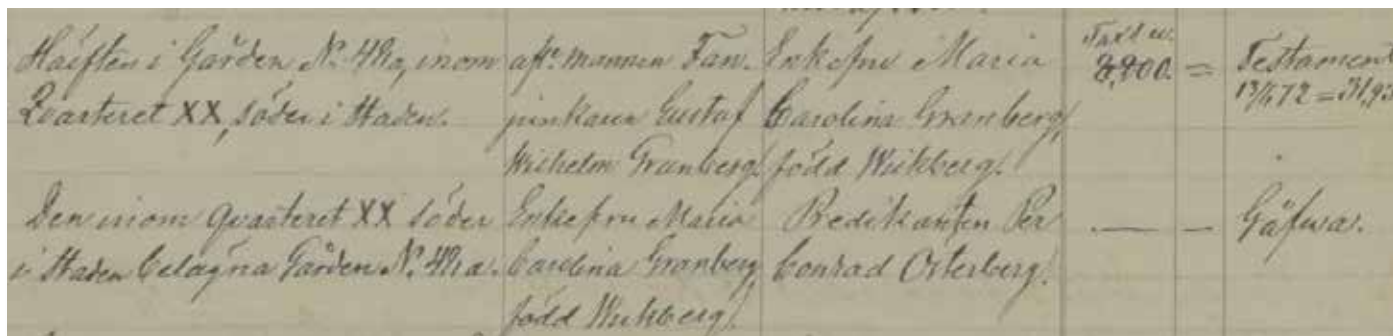 Häiften i Gården Nº 42a, inom
Qvarteret XX, söder i Staden.
aflr. mannen Fan-
junkaren Gustaf
Wilhelm Granberg.
Enkefru Maria
Carolina Granberg,
född Wickberg.
Taxt w.
8,200. =
Testament
13/4 72 =
Den inom Qvarteret XX söder
i Staden belägna Gården Nº 42a.
Enkefru Maria
Carolina Granberg
född Wickberg.
Predikanten Per
Conrad Österberg.
— —
Gåfwa.